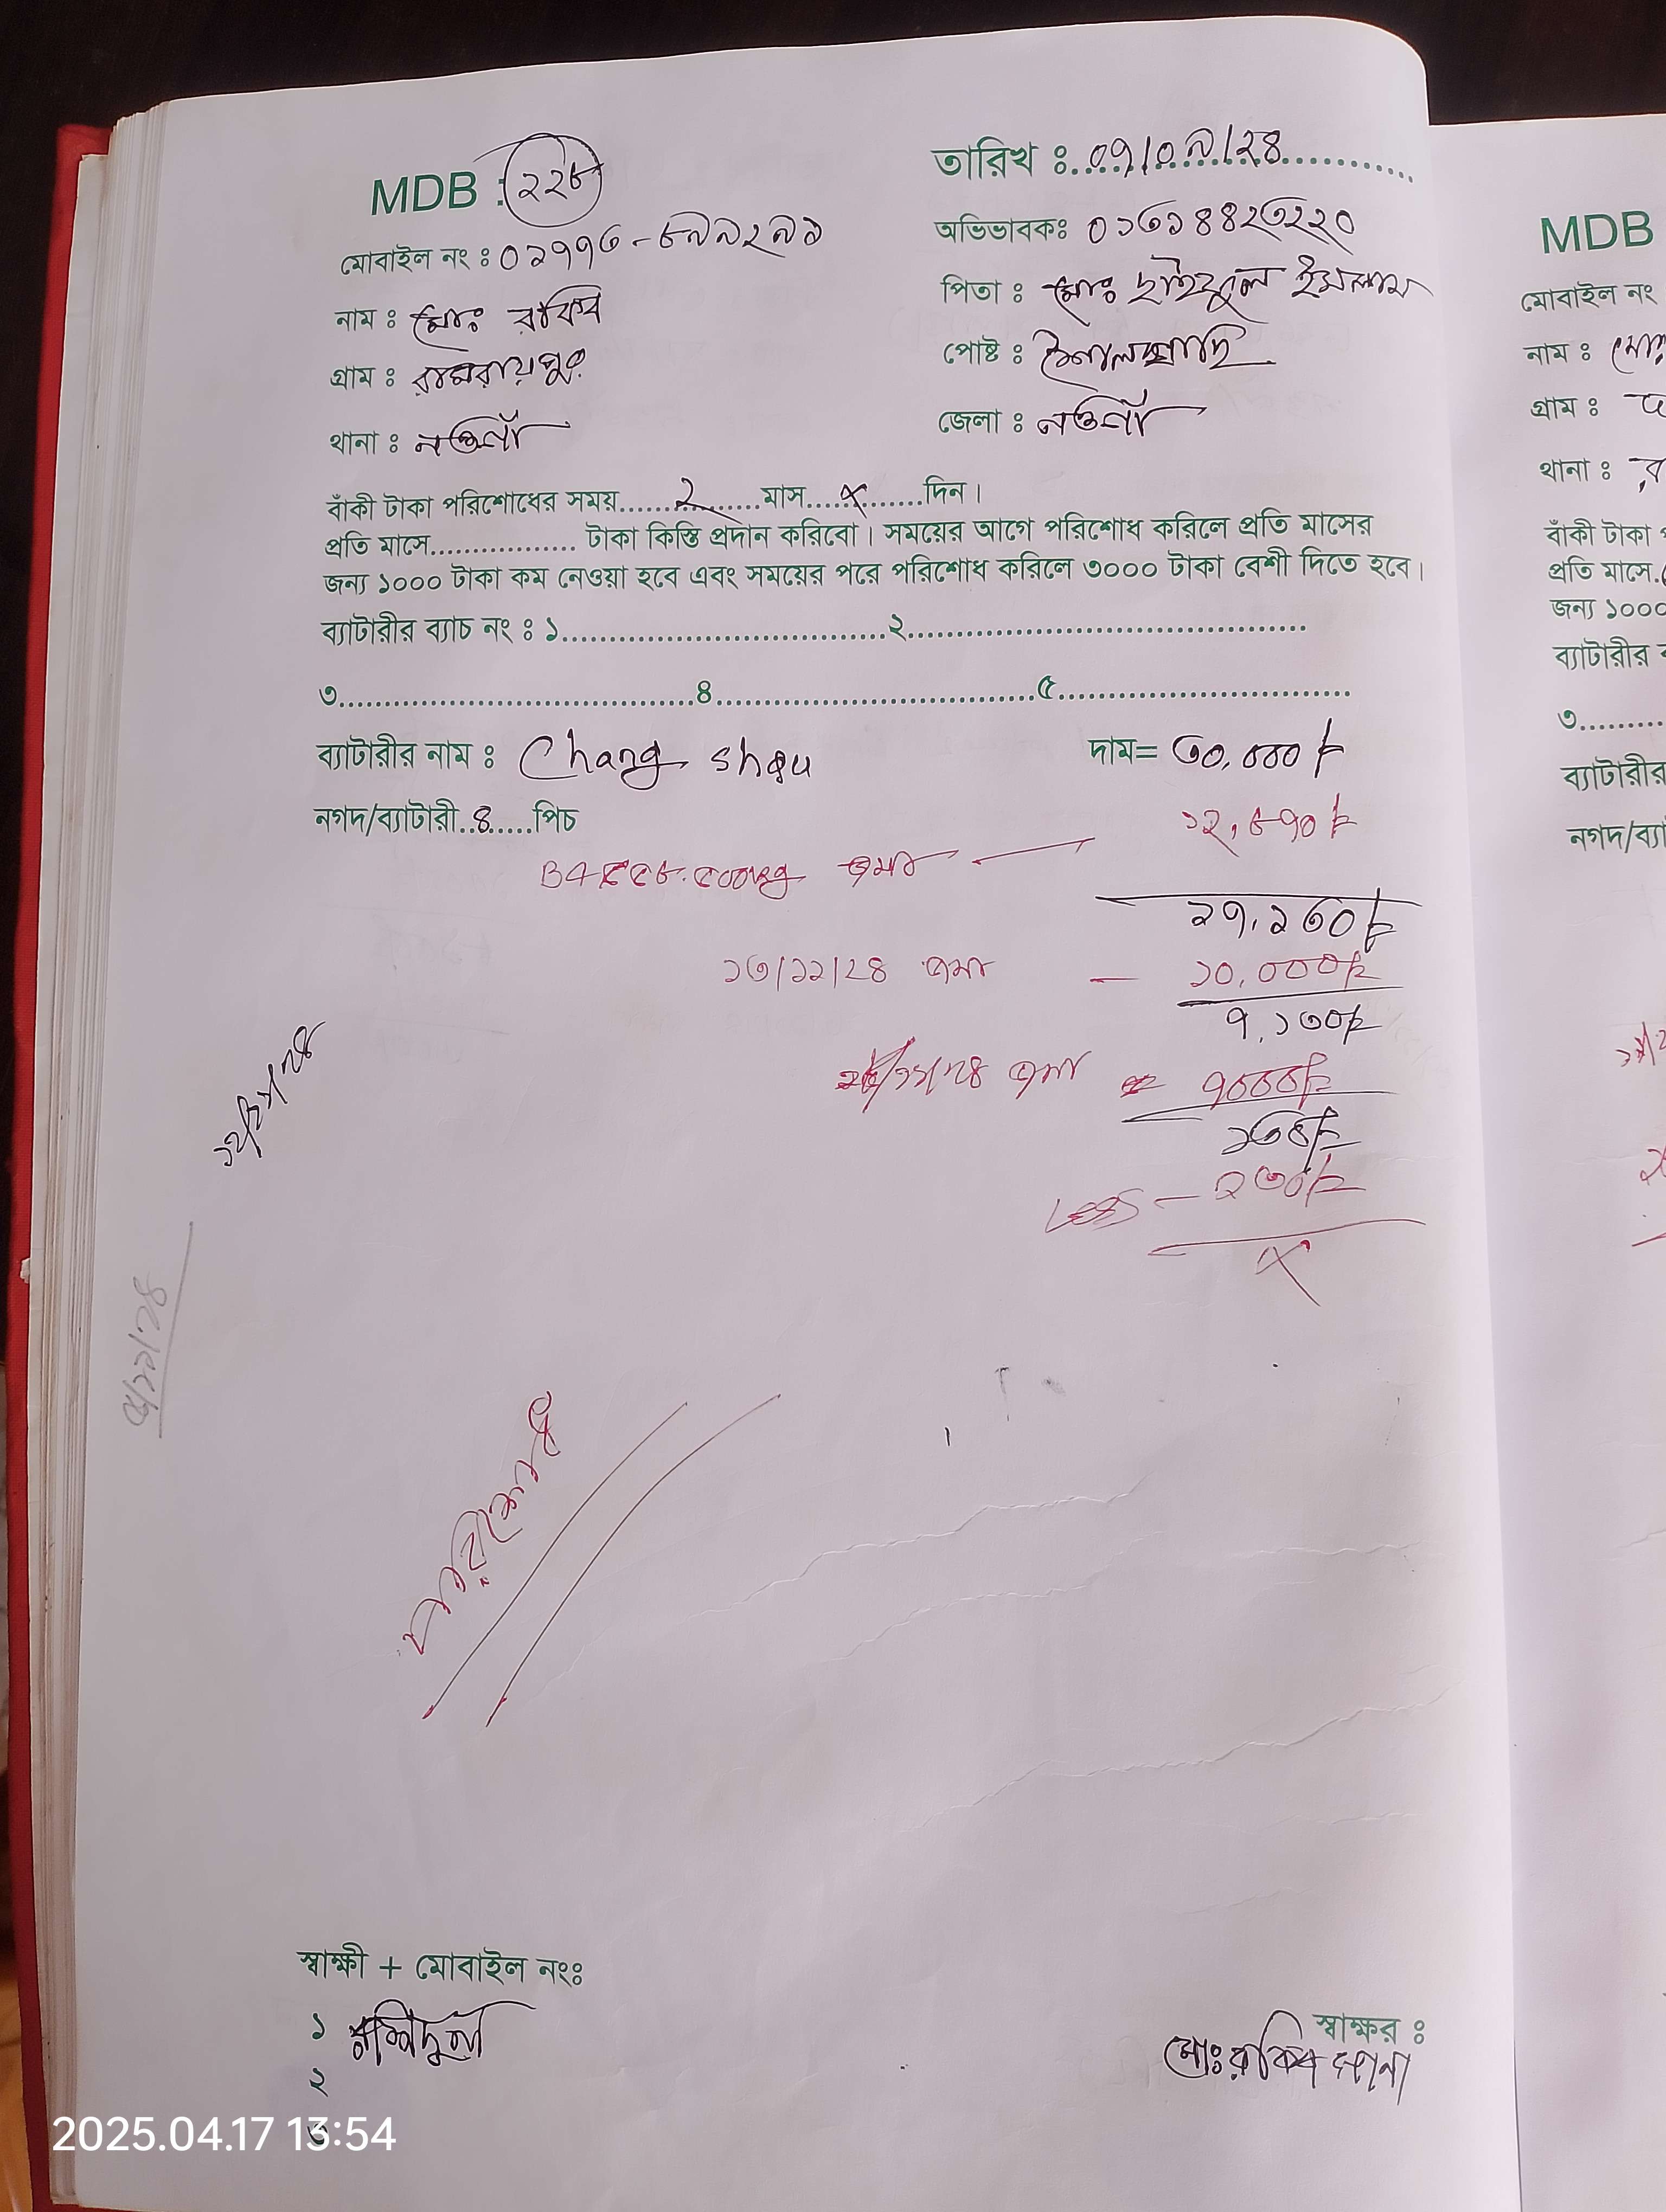 MDB : ২২৮
তারিখ : ০৭/০৯/২৪
মোবাইল নং : ০১৭৭৩-৮৯৯২৯১
অভিভাবকঃ ০১৩১৪৪২৩২২০
নাম : মোঃ রাকিব
পিতা : মোঃ ছাইফুল ইসলাম
গ্রাম : রামরায়পুর
পোষ্ট :
থানা : নওগাঁ
জেলা : নওগাঁ
বাঁকী টাকা পরিশোধের সময়.......২.......মাস....×.......দিন।
প্রতি মাসে................. টাকা কিস্তি প্রদান করিবো। সময়ের আগে পরিশোধ করিলে প্রতি মাসের
জন্য ১০০০ টাকা কম নেওয়া হবে এবং সময়ের পরে পরিশোধ করিলে ৩০০০ টাকা বেশী দিতে হবে।
ব্যাটারীর ব্যাচ নং : ১...................................২...........................................
৩......................................৪...................................৫................................
ব্যাটারীর নাম : Chang shou
দাম= ৩০,০০০৳
নগদ/ব্যাটারী..৪.....পিচ
১২,৮৭০৳
জমা
১৭,১৩০৳
১৩/১১/২৪ জমা — ১০,০০০৳
৭,১৩০৳
/১১/২৪ জমা = ৭০০০৳
১৩০৳
Less — ১৩০৳
×
পরিশোধ
স্বাক্ষী + মোবাইল নংঃ
১
২
৩
স্বাক্ষর :
মোঃ রাকিব
2025.04.17 13:54
MDB
মোবাইল নং
নাম : মোঃ
গ্রাম :
থানা :
বাঁকী টাকা
প্রতি মাসে.
জন্য ১০০০
ব্যাটারীর
৩.........
ব্যাটারীর
নগদ/ব্যা